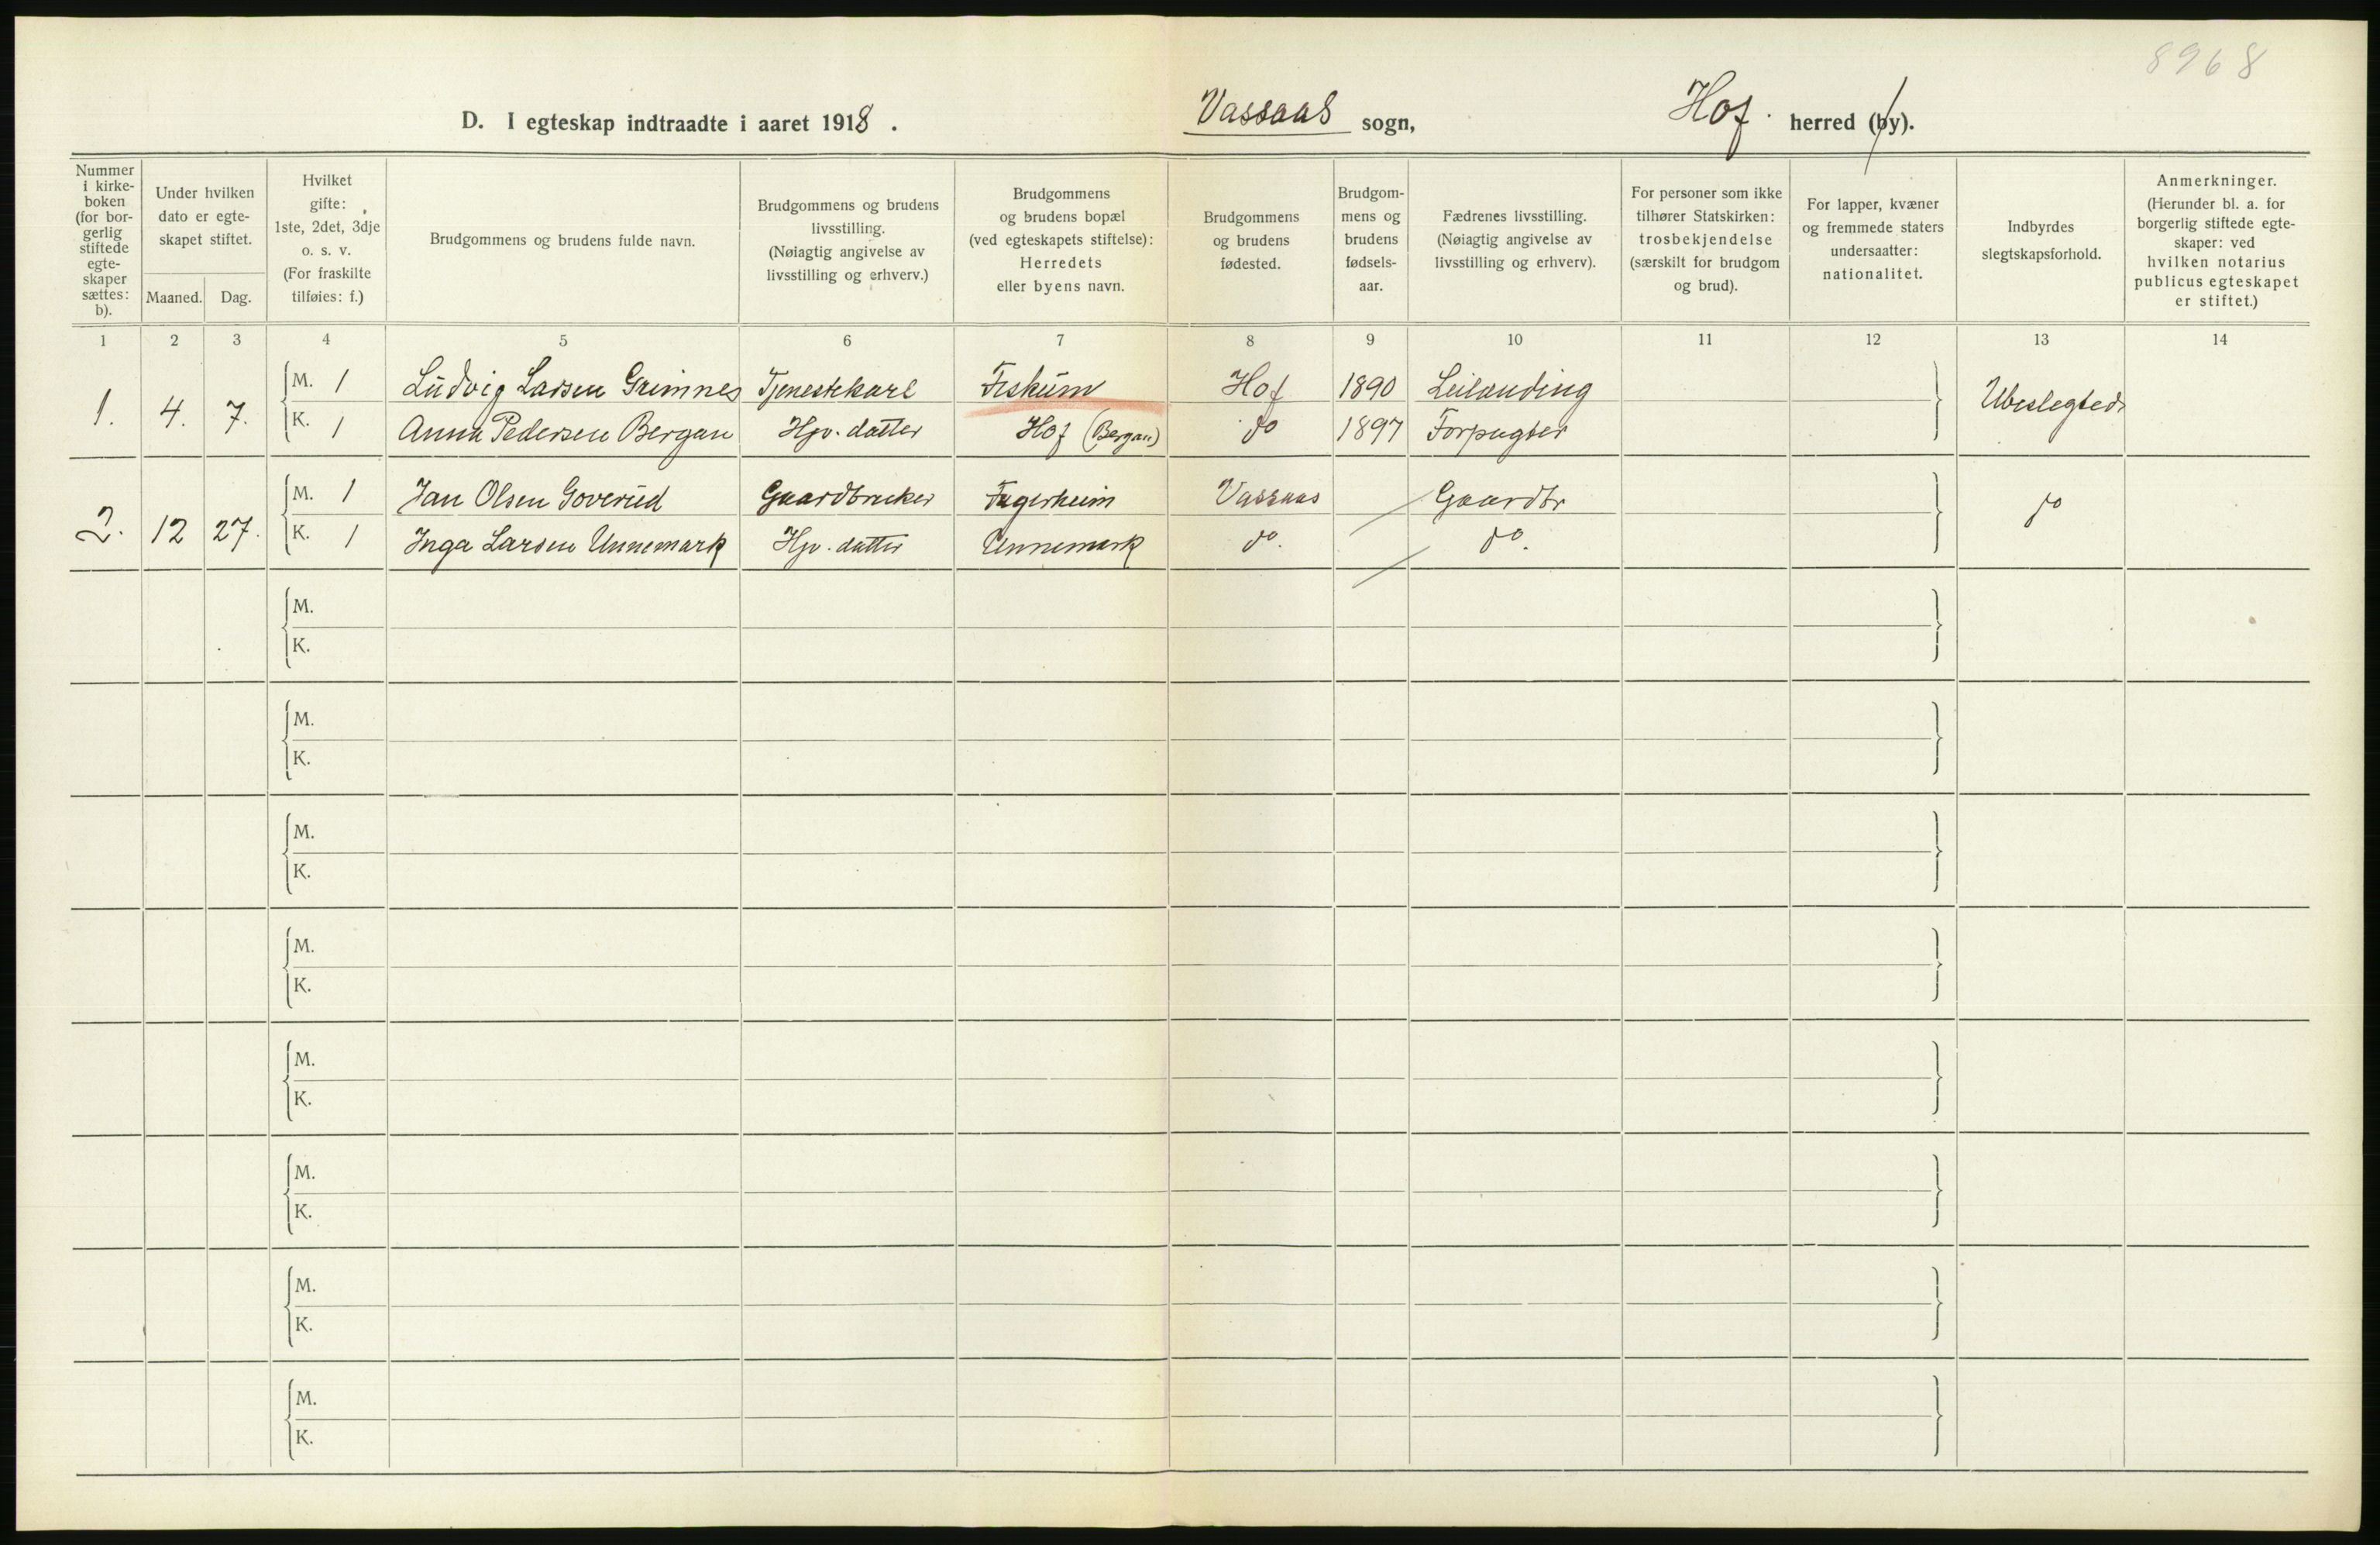 8968
D. I egteskap indtraadte i aaret 1918 . Vassaas sogn, Hof. herred (by).
Nummer i kirke-boken (for bor-gerlig stiftede egte-skaper sættes: b).
Under hvilken dato er egte-skapet stiftet.
Maaned. Dag.
Hvilket gifte: 1ste, 2det, 3dje o. s. v. (For fraskilte tilføies: f.)
Brudgommens og brudens fulde navn.
Brudgommens og brudens livsstilling. (Nøiagtig angivelse av livsstilling og erhverv.)
Brudgommens og brudens bopæl (ved egteskapets stiftelse): Herredets eller byens navn.
Brudgommens og brudens fødested.
Brudgom-mens og brudens fødsels-aar.
Fædrenes livsstilling. (Nøiagtig angivelse av livsstilling og erhverv).
For personer som ikke tilhører Statskirken: trosbekjendelse (særskilt for brudgom og brud).
For lapper, kvæner og fremmede staters undersaatter: nationalitet.
Indbyrdes slegtskapsforhold.
Anmerkninger. (Herunder bl. a. for borgerlig stiftede egte-skaper: ved hvilken notarius publicus egteskapet er stiftet.)
1 2 3 4 5 6 7 8 9 10 11 12 13 14
1. 4. 7. M. 1 Ludvig Larsen Grimnes Tjenestekarl Fiskum Hof 1890 Leilænding Ubeslegtede
K. 1 Anna Pedersen Bergan Hjv. datter Hof (Bergan) do 1897 Forpagter
2. 12 27. M. 1 Jan Olsen Goverud Gaardbruker Fagerheim Vassaas Gaardbr do
K. 1 Inga Larsen Unnemark Hjv. datter Unnemark do. do.
M.
K.
M.
K.
M.
K.
M.
K.
M.
K.
M.
K.
M.
K.
M.
K.